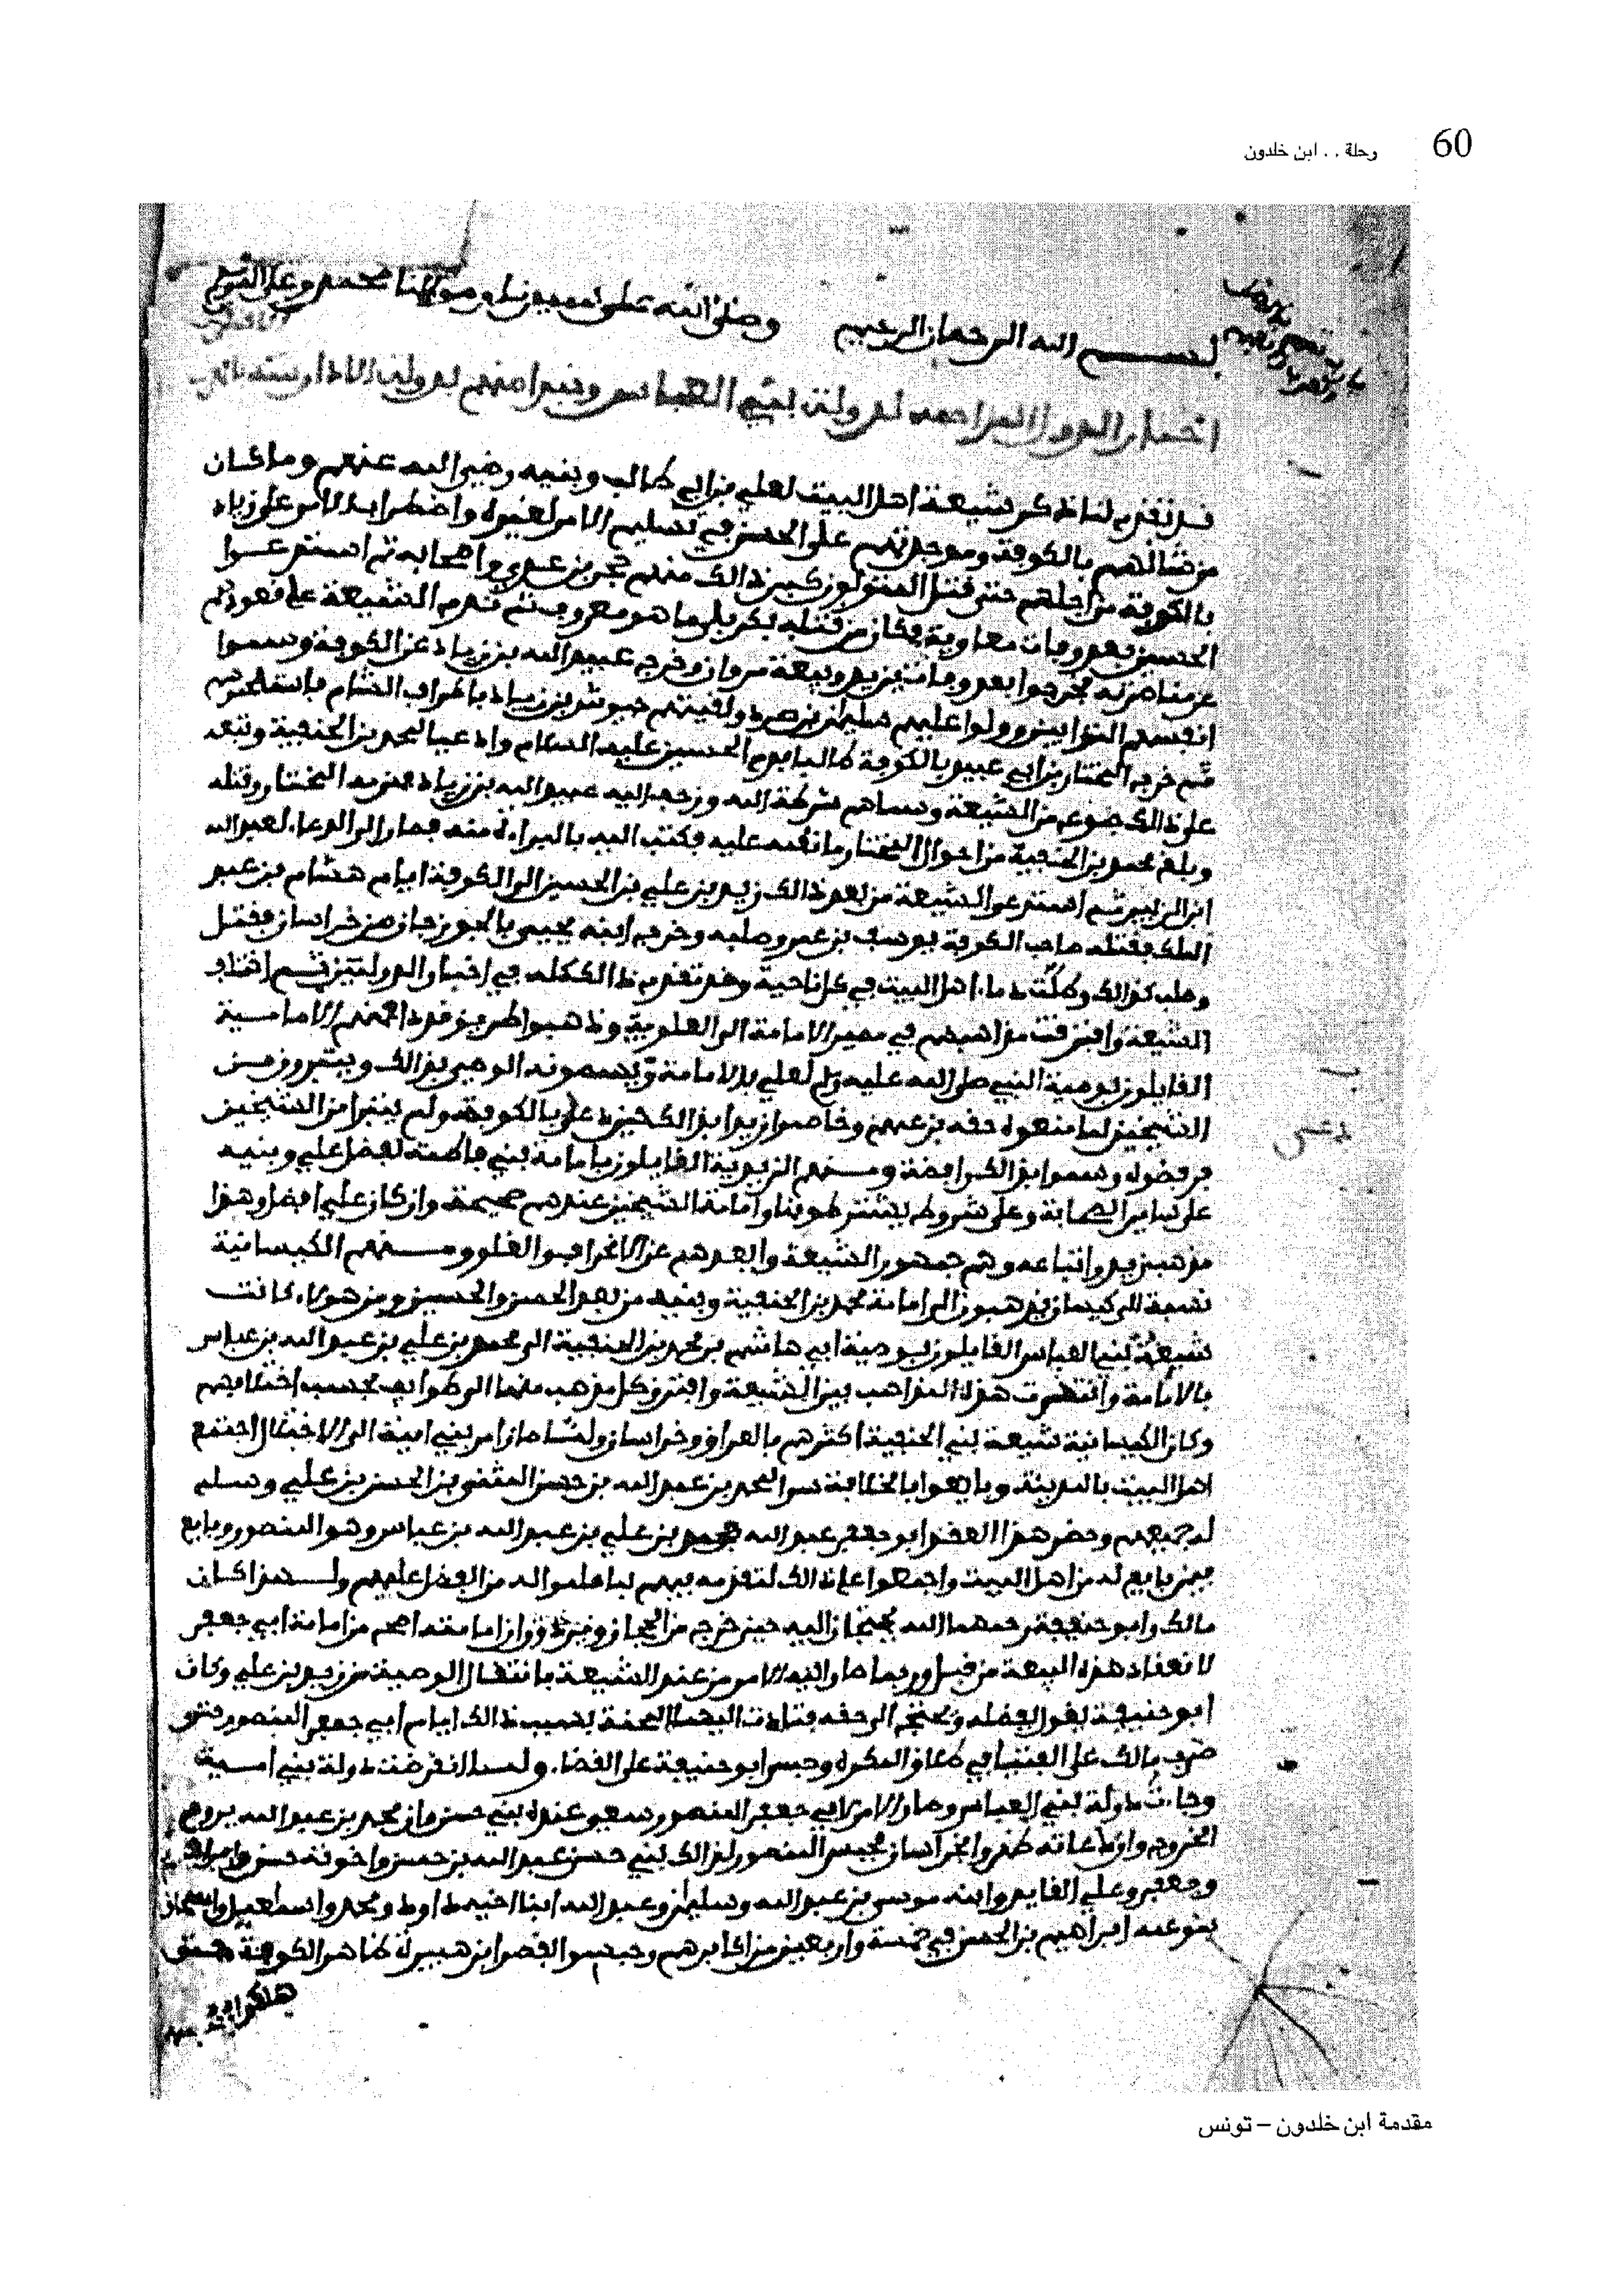 60
رحلة . . ابن خلدون
بسم الله الرحمان الرحيم وصلى الله على سيدنا ومولانا محمد وعلى
اخبار الدول المزاحمة لدولة بني العباس ونبدا منهم بدولة الادارسة
قد تقدم لنا ذكر شيعة اهل البيت لعلي بن ابي طالب وبنيه رضي الله عنهم وما كان
من شانهم بالكوفة وموجدتهم على الحسن في تسليم الامر لغيره واضطراب الامر على زياد
بالكوفة من اجلهم حتى قتل المتولون كبر ذالك منهم حجر بن عدي واصحابه ثم استدعوا
الحسين بعد وفات معاوية فكان من قتله بكربلا ما هو معروف ثم ندم الشيعة على قعودهم
عن مناصرته فخرجوا بعد وفات يزيد وبيعة مروان وخرج عبيد الله بن زياد عن الكوفة وسموا
انفسهم التوابين وولوا عليهم سليمان بن صرد ولقيتهم جيوش بن زياد باطراف الشام فاستلحموهم
ثم خرج المختار بن ابي عبيد بالكوفة طالبا بدم الحسين عليه السلام وداعيا لمحمد بن الحنفية وتبعه
على ذالك جموع من الشيعة وسماهم شرطة الله وزحف اليه عبيد الله بن زياد فهزمه المختار وقتله
وبلغ محمد بن الحنفية من احوال المختار ما نقمه عليه فكتب اليه بالبراءة منه فصار الى الدعاء لعبد الله
ابن الزبير ثم استدعى الشيعة من بعد ذالك زيد بن علي بن الحسين الى الكوفة ايام هشام بن عبد
الملك فقتله صاحب الكوفة يوسف بن عمر وصلبه وخرج ابنه يحيى بالجوزجان من خراسان فقتل
وصلب كذالك وطلت دماء اهل البيت في كل ناحية وقد تقدم ذالك كله في اخبار الدولتين ثم اختلف
الشيعة وافترقت مذاهبهم في مصير الامامة الى العلوية وذهبوا طرايق قددا فمنهم الامامية
القايلون بوصية النبي صلى الله عليه وسلم لعلي بالامامة ويسمونه الوصي بذالك ويتبرون من
الشيخين لما منعوه حقه بزعمهم وخاصموا زيدا بذالك حين دعا بالكوفة ومن لم يتبرا من الشيخين
رفضوه وسموا بذالك رافضة ومنهم الزيدية القايلون بامامة بني فاطمة لفضل علي وبنيه
على ساير الصحابة وعلى شروط يشترطونها وامامة الشيخين عندهم صحيحة وان كان علي افضل وهذا
مذهب زيد واتباعه وهم جمهور الشيعة وابعدهم عن الانحراف والغلو ومنهم الكيسانية
نسبة الى كيسان يذهبون الى امامة محمد بن الحنفية وبنيه من بعد الحسن والحسين ومن هولاء كانت
شيعة بني العباس القايلون بوصية ابي هاشم بن محمد بن الحنفية الى محمد بن علي بن عبد الله بن عباس
بالامامة وانتشرت هذه المذاهب بين الشيعة وافترق كل مذهب منها الى طوايف بحسب اختلافهم
وكان الكيسانية شيعة بني الحنفية اكثرهم بالعراق وخراسان ولما صار امر بني امية الى الاختلال اجتمع
اهل البيت بالمدينة وبايعوا بالخلافة سرا لمحمد بن عبد الله بن حسن المثنى بن الحسن بن علي وسلم
له جميعهم وحضر هذا العقد ابو جعفر عبد الله بن محمد بن علي بن عبد الله بن عباس وهو المنصور وبايع
فيمن بايع له من اهل البيت واجمعوا على ذالك لتقدمه فيهم لما علموا له من الفضل عليهم ولهذا كان
مالك وابو حنيفة رحمهما الله يحتجان اليه حين خرج من الحجاز ويريدون ان امامته اصح من امامة ابي جعفر
لانعقاد هذه البيعة من قبل وربما صار اليه الامر من عند الشيعة بانتقال الوصية من زيد بن علي وكان
ابو حنيفة يقول بفضله ويحتج الى حقه فتادت اليهما المحنة بسبب ذالك ايام ابي جعفر المنصور حتى
ضرب مالك على الفتيا في طلاق المكره وحبس ابو حنيفة على القضاء ولما انقرضت دولة بني امية
وجاءت دولة بني العباس وصار الامر لابي جعفر المنصور سعي عنده ببني حسن وان محمد بن عبد الله يروم
الخروج وان دعاته ظهروا بخراسان فحبس المنصور لذالك بني حسن عبد الله بن حسن واخوته حسن وابراهيم
وجعفر وعلي القايد وابنه موسى بن عبد الله وسليمان وعبد الله ابنا اخيه داود ومحمد واسماعيل واسحاق
بنو عمه ابراهيم بن الحسن في خمسة واربعين من اكابرهم وحبسوا بقصر ابن هبيرة ظاهر الكوفة حتى
هلكوا في
مقدمة ابن خلدون – تونس